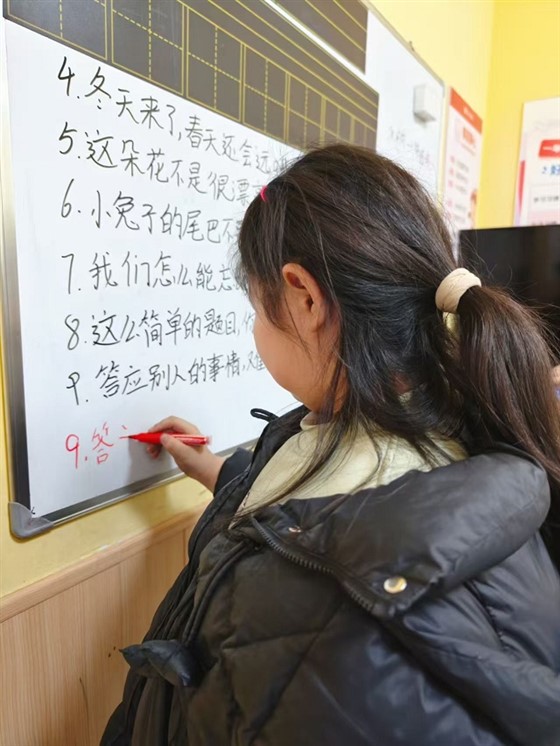 4.冬天来了,春天还会远
5.这朵花不是很漂
6.小兔子的尾巴不
7.我们怎么能忘
8.这么简单的题目,你
9.答应别人的事情,又
9.答